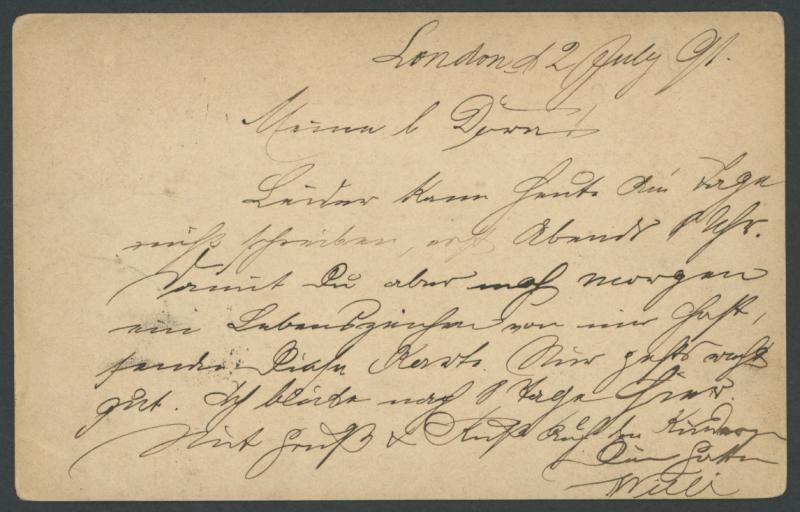 London d 2 July 91.
Meine l Dora!
Leider kann heute am Tage
nicht schreiben, erst Abends 8 Uhr.
Damit Du aber noch morgen
ein Lebenszeichen von mir hast,
sende Diese Karte. Mir gehts recht
gut. Ich bleibe noch 8 Tage hier.
Mit Gruß & Kuß auch den Kindern
Dein Gatte
Willi